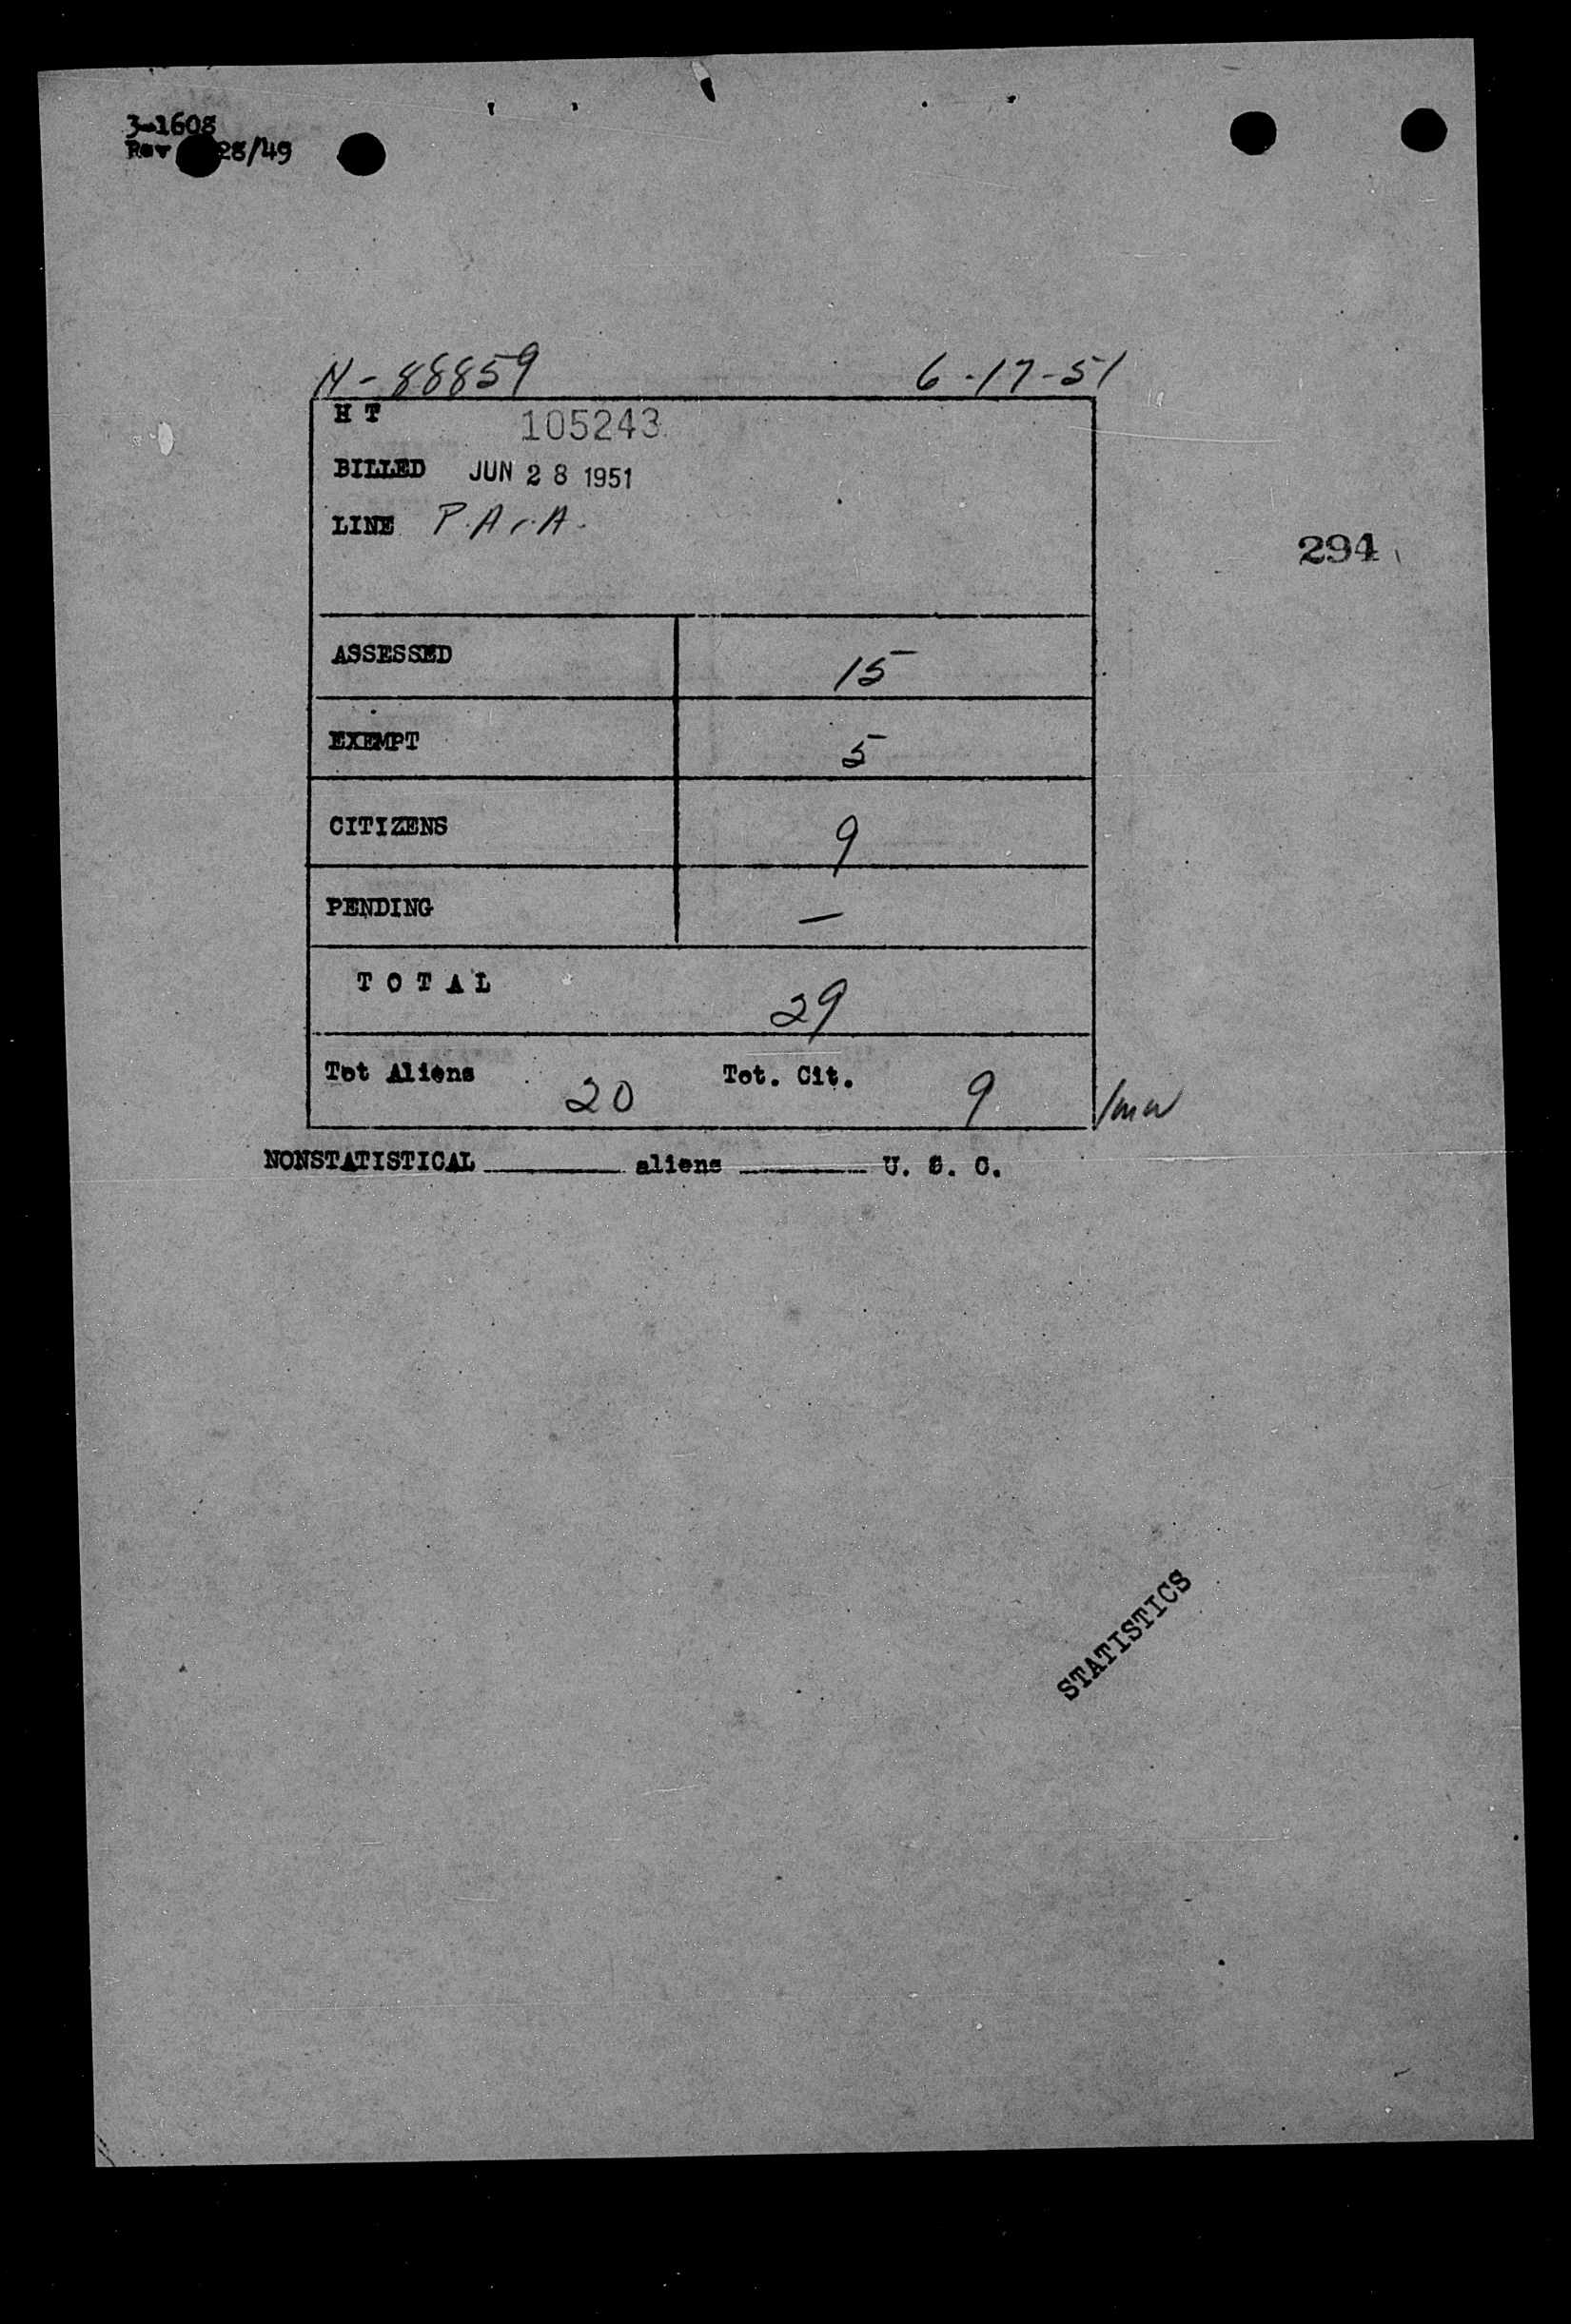 3-1608
Rev 28/49
N-88859 6-17-51
H T 105243
BILLED JUN 28 1951
LINE P.A.A.
294
ASSESSED 15
EXEMPT 5
CITIZENS 9
PENDING —
TOTAL 29
Tot Aliens 20 Tot. Cit. 9
NONSTATISTICAL ________ aliens ________ U. S. C.
STATISTICS